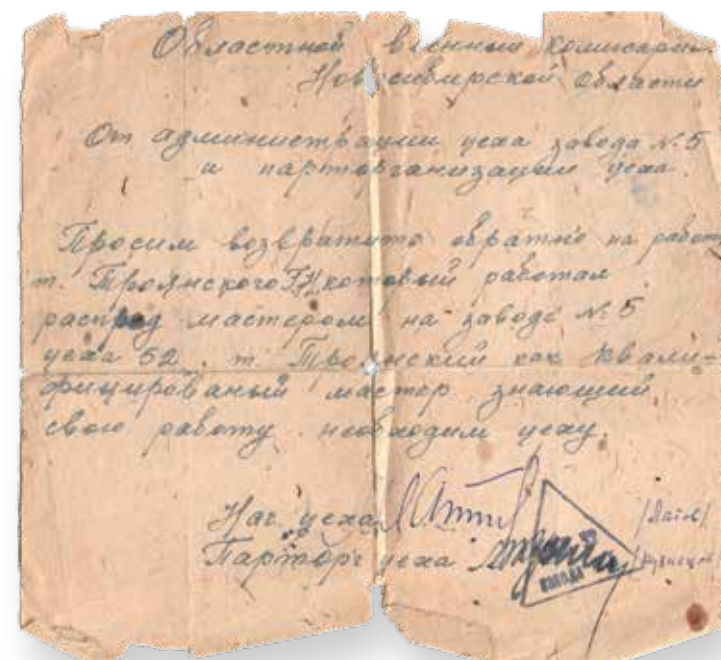 Областной военный комиссариа
Новосибирской области
От администрации цеха завода №5
и парторганизации цеха.
Просим возвратить обратно на работ
т. Троянского Г.И. который работал
распред мастером на заводе №5
цеха 52. т. Троянский как квали-
фицированый мастер знающий
свою работу необходим цеху.
Нач. цеха
Парторг цеха